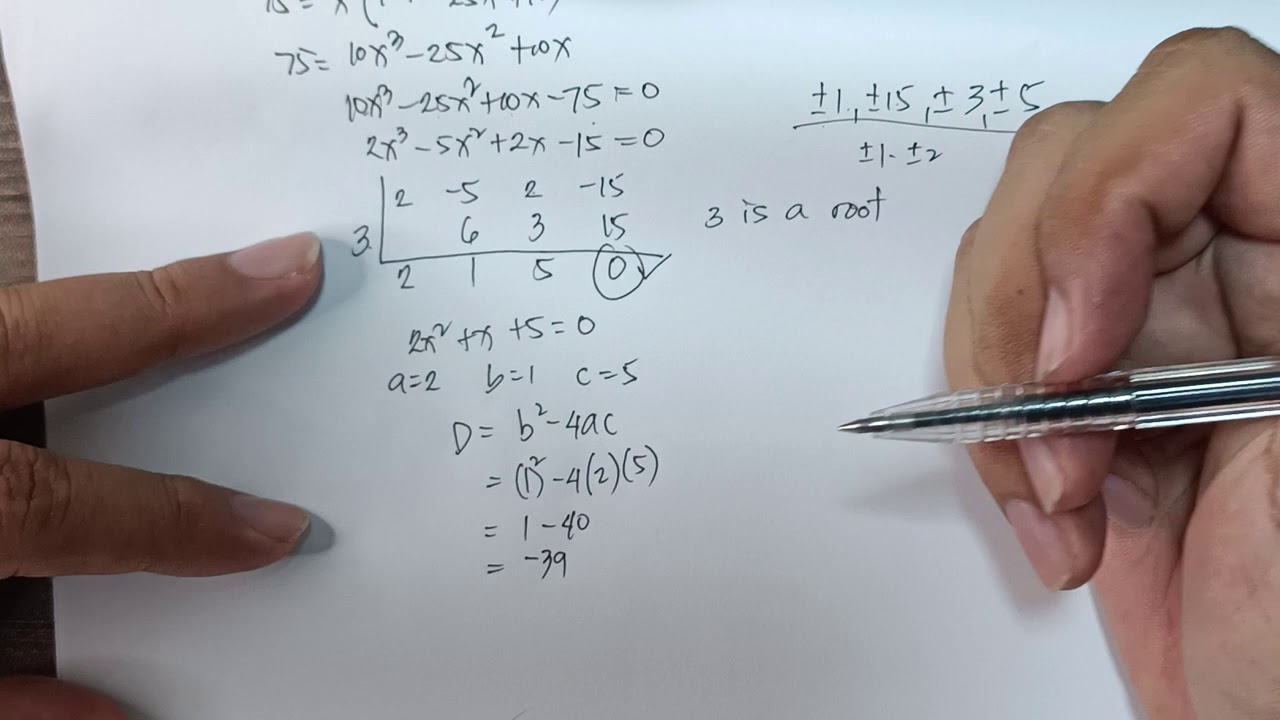 75 = 10x³ - 25x² + 10x
10x³ - 25x² + 10x - 75 = 0
2x³ - 5x² + 2x - 15 = 0
±1, ±15, ±3, ±5
±1. ±2
2 -5 2 -15
3. 6 3 15
2 1 5 0 ✓
3 is a root
2x² + x + 5 = 0
a=2 b=1 c=5
D = b² - 4ac
= (1)² - 4(2)(5)
= 1 - 40
= -39